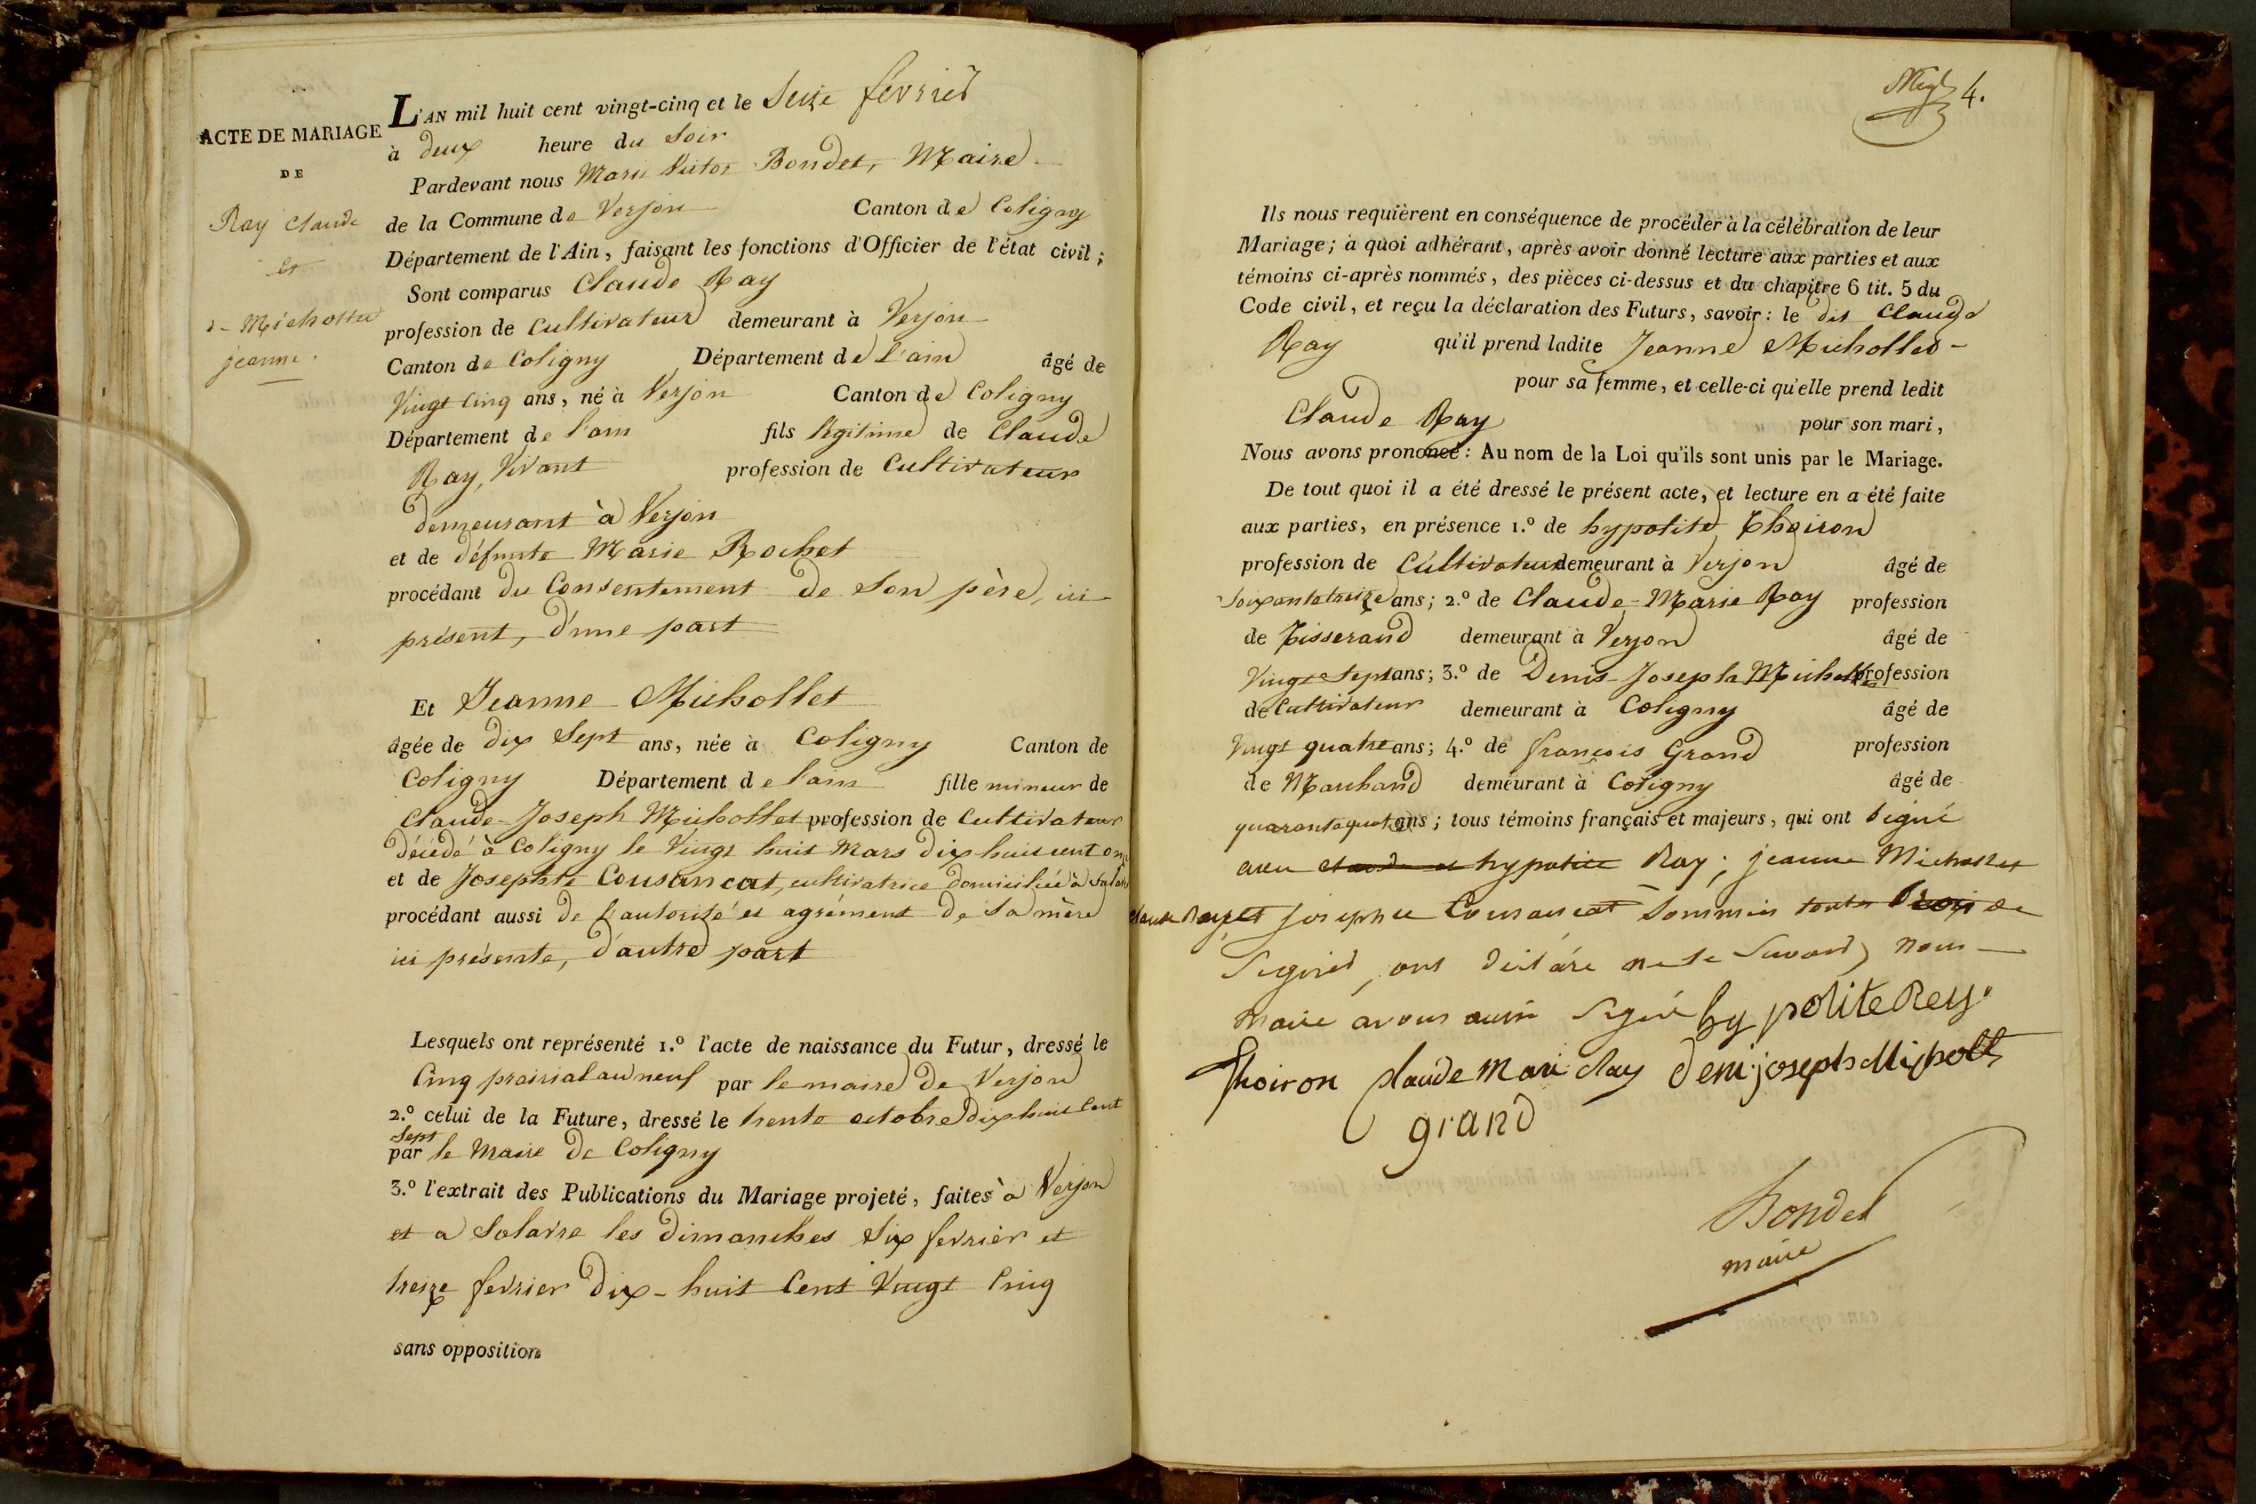 ACTE DE MARIAGE
DE
Ray Claude
et
Michollet
jeanne.
L'AN mil huit cent vingt-cinq et le Seize février
à deux heure du Soir
Pardevant nous Marie Victor Bondet, Maire
de la Commune de Verjon Canton de Coligny
Département de l'Ain, faisant les fonctions d'Officier de l'état civil;
Sont comparus Claude Ray
profession de Cultivateur demeurant à Verjon
Canton de Coligny Département de l'ain âgé de
Vingt Cinq ans, né à Verjon Canton de Coligny
Département de l'ain fils légitime de Claude
Ray, Vivant profession de Cultivateur
demeurant à Verjon
et de défunte Marie Rochet
procédant du Consentement de Son père, ici
présent, d'une part
Et Jeanne Michollet
âgée de dix Sept ans, née à Coligny Canton de
Coligny Département de l'ain fille mineur de
Claude-Joseph Michollet profession de Cultivateur
décédé à Coligny le Vingt huit Mars dix huit cent onze
et de Josephte Cousancat, cultivatrice domiciliée à
procédant aussi de l'autorité et agrément de Sa mère
ici présente, d'autre part
Lesquels ont représenté 1.º l'acte de naissance du Futur, dressé le
Cinq prairial an neuf par le maire de Verjon
2.º celui de la Future, dressé le trente octobre dix huit Cent
Sept
par le Maire de Coligny
3.º l'extrait des Publications du Mariage projeté, faites à Verjon
et a Salavre les dimanches Six fevrier et
treize fevrier dix-huit Cent Vingt Cinq
sans opposition
4.
Ils nous requièrent en conséquence de procéder à la célébration de leur
Mariage; à quoi adhérant, après avoir donné lecture aux parties et aux
témoins ci-après nommés, des pièces ci-dessus et du chapitre 6 tit. 5 du
Code civil, et reçu la déclaration des Futurs, savoir: le dit Claude
Ray qu'il prend ladite Jeanne Michollet
pour sa femme, et celle-ci qu'elle prend ledit
Claude Ray pour son mari,
Nous avons prononcé: Au nom de la Loi qu'ils sont unis par le Mariage.
De tout quoi il a été dressé le présent acte, et lecture en a été faite
aux parties, en présence 1.º de hypolite Thoiron
profession de Cultivateur demeurant à Verjon âgé de
Soixante treize ans; 2.º de Claude-Marie Ray profession
de Tisserand demeurant à Verjon âgé de
Vingt Sept ans; 3.º de Denis-Joseph Michollet profession
de Cultivateur demeurant à Coligny âgé de
Vingt quatre ans; 4.º de françois Grand profession
de Marchand demeurant à Coligny âgé de
quarante quatre ans; tous témoins français et majeurs, qui ont Signé
avec hypolite Ray; jeanne Michollet
Claude Ray et Josephte Cousancat Sommés toutes Trois de
Signer, ont déclaré ne le Savoir, nous
maire avons aussi Signé hypolite Rey
Thoiron claude Marie Ray deni joseph Micholet
grand
Bondet
maire